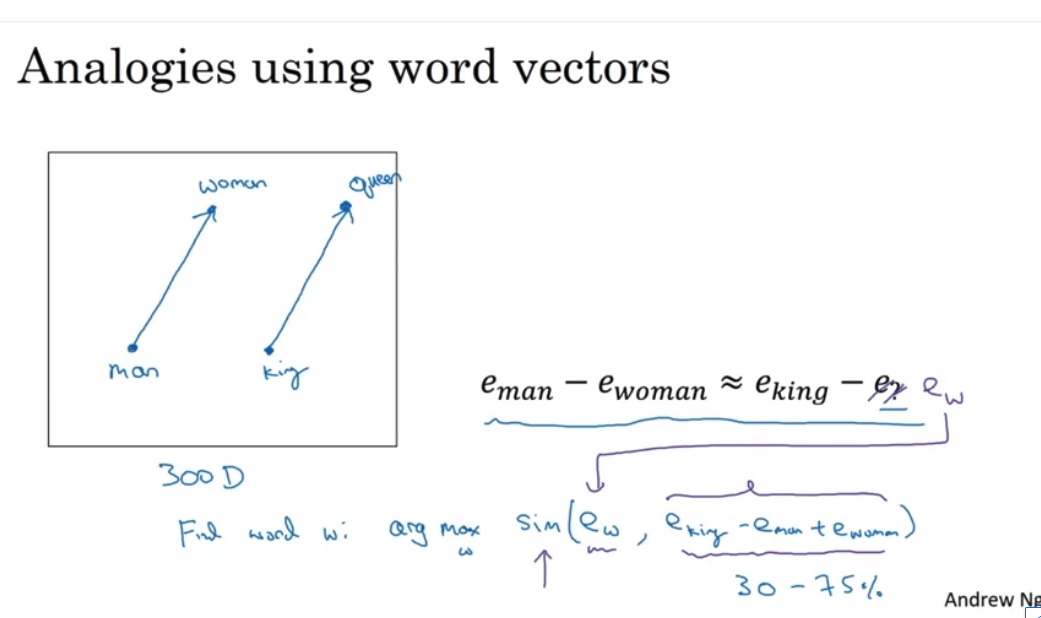 Analogies using word vectors
woman queen
man king
e_man − e_woman ≈ e_king − e_? e_w
300 D
Find word w: arg max_w sim(e_w, e_king - e_man + e_woman)
30 - 75%
Andrew Ng